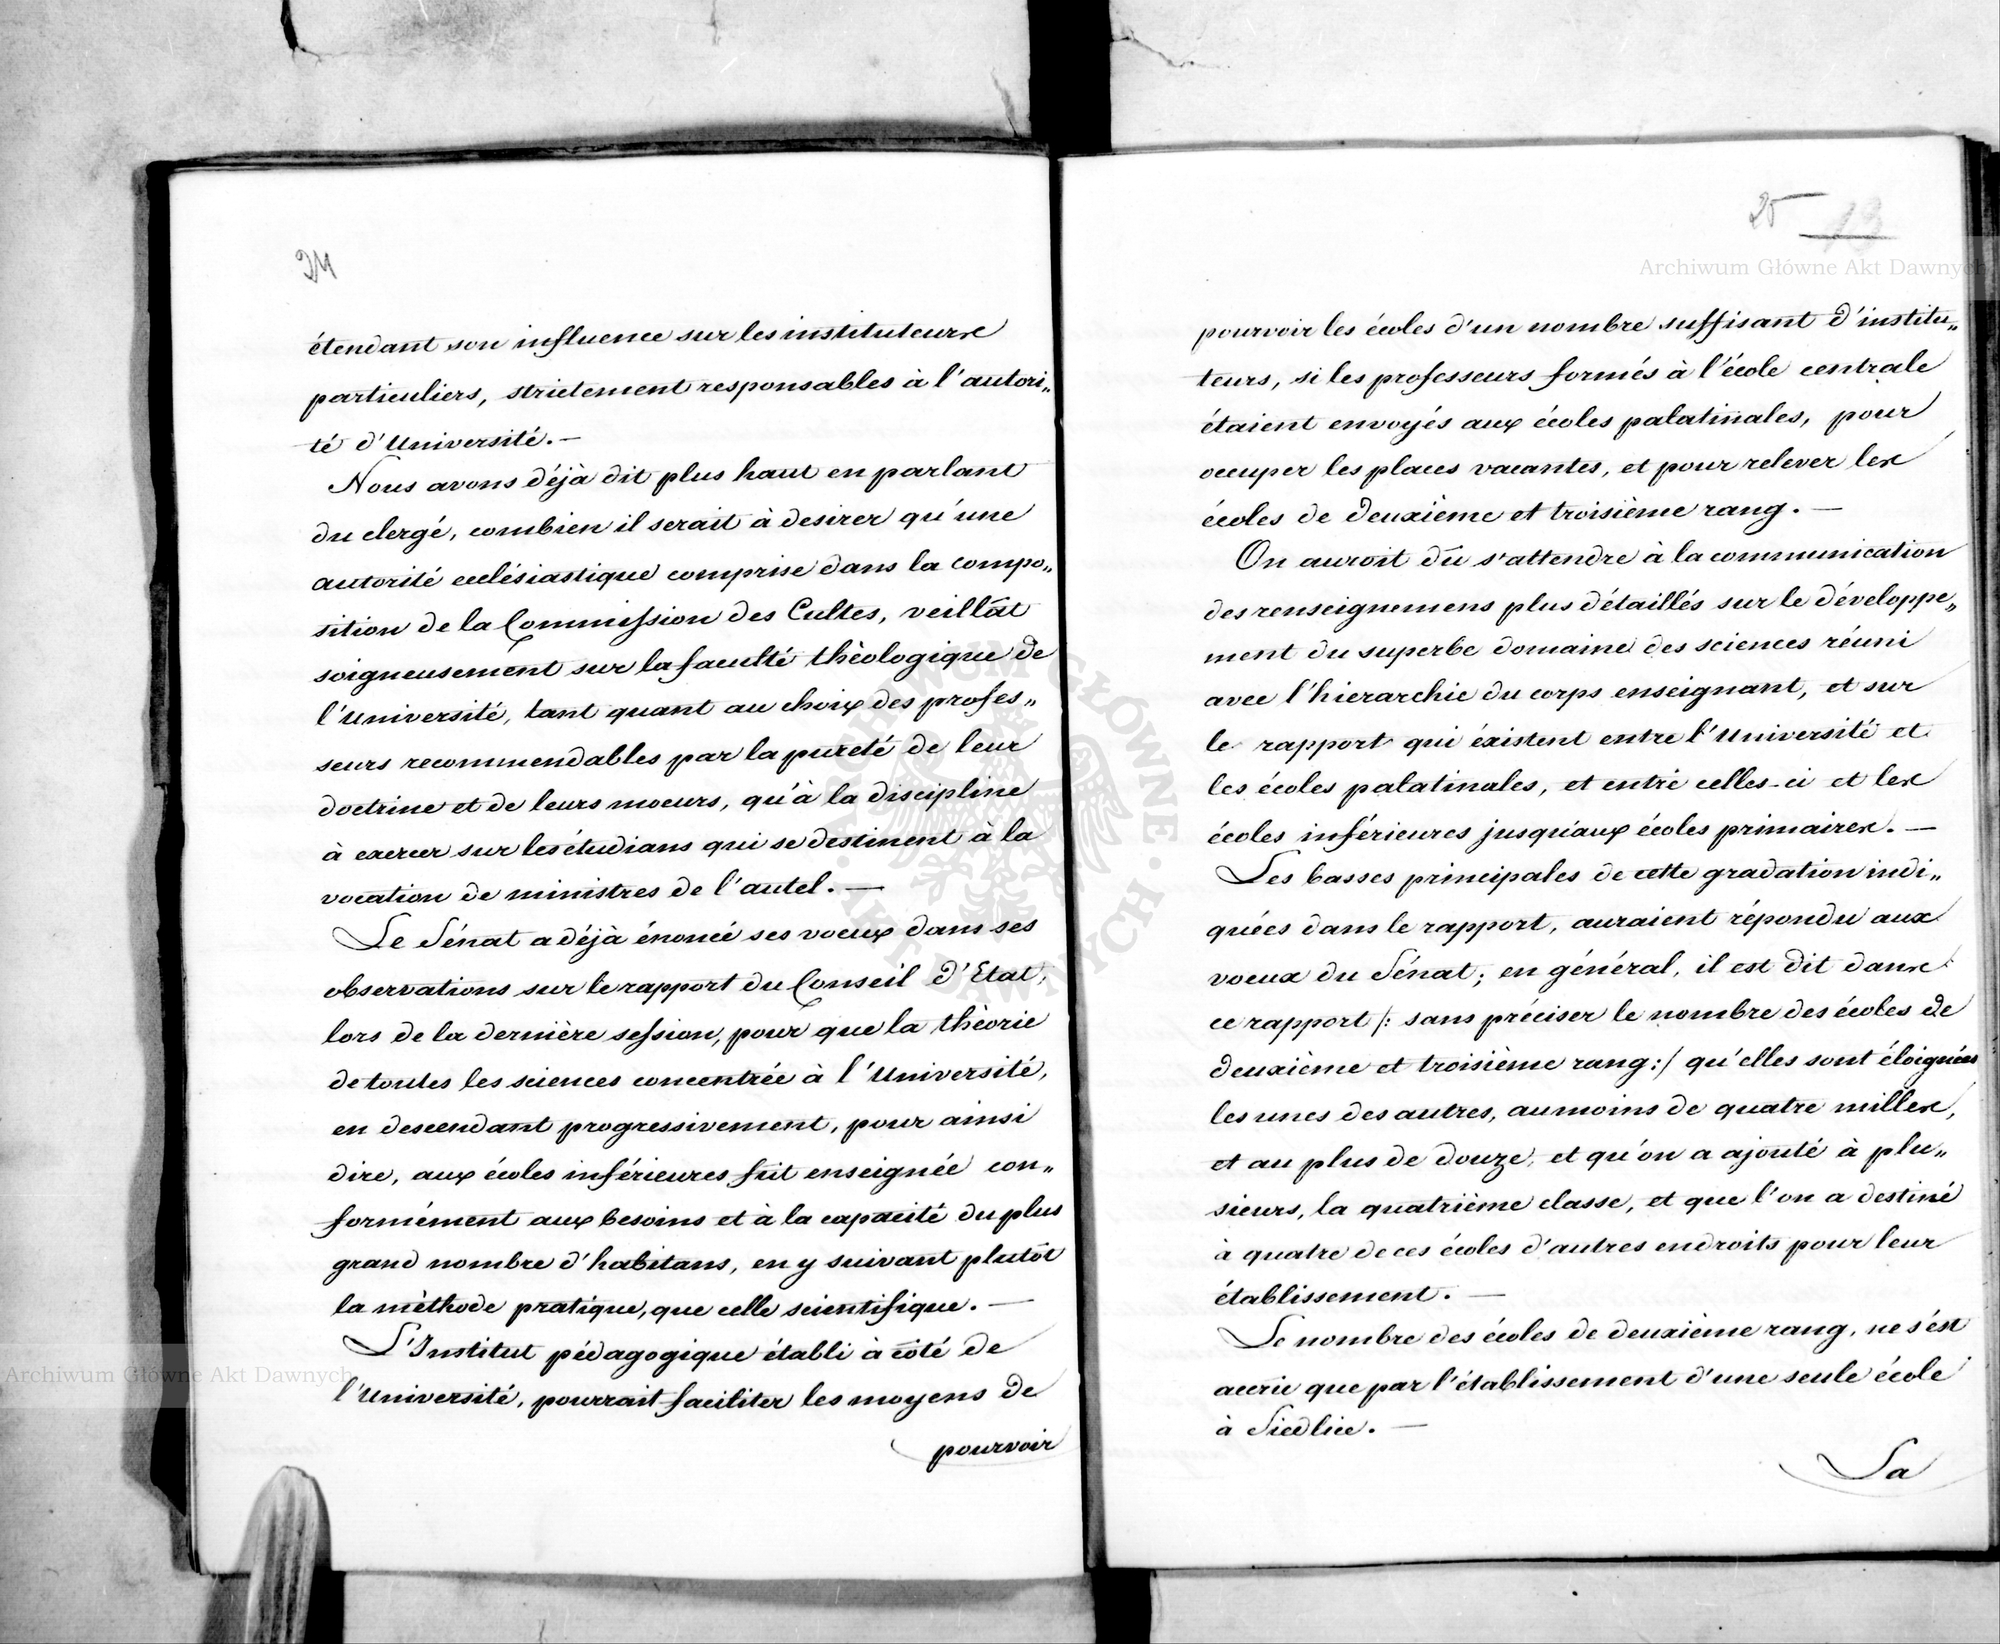 24
étendant son influence sur les instituteurs
particuliers, strictement responsables à l'autori„
té d'Université. —
Nous avons déjà dit plus haut en parlant
du clergé, combien il serait à desirer qu'une
autorité ecclésiastique comprise dans la compo„
sition de la Commission des Cultes, veillât
soigneusement sur la faculté thèologique de
l'Université, tant quant au choix des profes„
seurs recommendables par la pureté de leur
doctrine et de leurs moeurs, qu'à la discipline
à exercer sur les étudians qui se destinent à la
vocation de ministres de l'autel. —
Le Sénat a déjà énoncé ses voeux dans ses
observations sur le rapport du Conseil d'Etat,
lors de la dernière session, pour que la thèorie
de toutes les sciences concentrée à l'Université,
en descendant progressivement, pour ainsi
dire, aux écoles inférieures fut enseignée con„
formément aux besoins et à la capacité du plus
grand nombre d'habitans, en y suivant plutôt
la mèthode pratique, que celle scientifique. —
L'Institut pédagogique établi à côté de
l'Université, pourrait faciliter les moyens de
pourvoir
25 13
pourvoir les écoles d'un nombre suffisant d'institu„
teurs, si les professeurs formés à l'école centrale
étaient envoyés aux écoles palatinales, pour
occuper les places vacantes, et pour relever les
écoles de deuxième et troisième rang. —
On auroit dû s'attendre à la communication
des renseignemens plus détaillés sur le développe„
ment du superbe domaine des sciences réuni
avec l'hierarchie du corps enseignant, et sur
le rapport qui éxistent entre l'Université et
les écoles palatinales, et entre celles-ci et les
écoles inférieures jusqu'aux écoles primaires. —
Les basses principales de cette gradation indi„
quées dans le rapport, auraient répondu aux
voeux du Sénat; en général, il est dit dans
ce rapport /: sans préciser le nombre des écoles de
deuxième et troisième rang :/ qu'elles sont éloignées
les unes des autres, au moins de quatre milles,
et au plus de douze, et qu'on a ajouté à plu„
sieurs, la quatrième classe, et que l'on a destiné
à quatre de ces écoles d'autres endroits pour leur
établissement. —
Le nombre des écoles de deuxième rang, ne s'est
accrie que par l'établissement d'une seule école
à Siedlce. —
La
Archiwum Główne Akt Dawnych
Archiwum Główne Akt Dawnych
ARCHIWUM GŁÓWNE AKT DAWNYCH